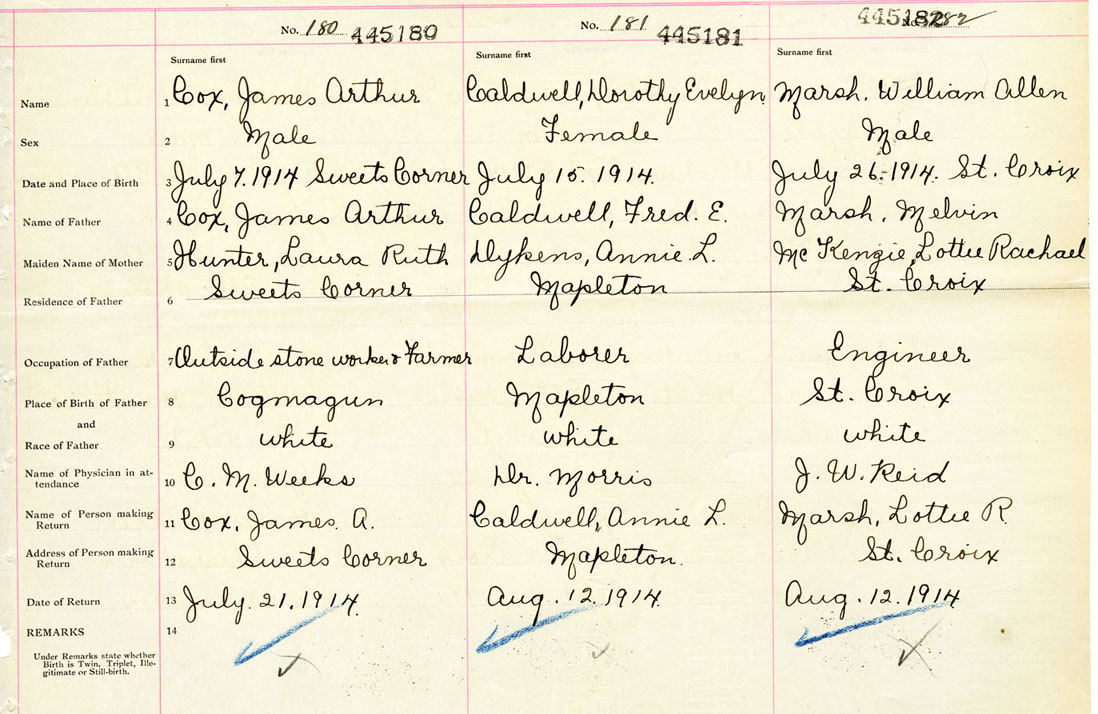 No. 180 445180 No. 181 445181 445182 No. 182
Surname first Surname first Surname first
Name 1 Cox, James Arthur Caldwell, Dorothy Evelyn Marsh. William Allen
Sex 2 Male Female Male
Date and Place of Birth 3 July 7. 1914 Sweets Corner July 15. 1914. July 26. 1914. St. Croix
Name of Father 4 Cox, James Arthur Caldwell, Fred. E. Marsh, Melvin
Maiden Name of Mother 5 Hunter, Laura Ruth Dykens, Annie L. Mc Kengie, Lottie Rachael
Residence of Father 6 Sweets Corner Mapleton St. Croix
Occupation of Father 7 Outside stone worker & Farmer Laborer Engineer
Place of Birth of Father 8 Cogmagun Mapleton St. Croix
and
Race of Father 9 white white white
Name of Physician in at-
tendance 10 C. M. Weeks Dr. Morris J. W. Reid
Name of Person making
Return 11 Cox, James. A. Caldwell, Annie L. Marsh, Lottie R.
Address of Person making
Return 12 Sweets Corner Mapleton. St. Croix
Date of Return 13 July. 21. 1914. Aug. 12. 1914. Aug. 12. 1914
REMARKS 14
Under Remarks state whether
Birth is Twin, Triplet, Ille-
gitimate or Still-birth.